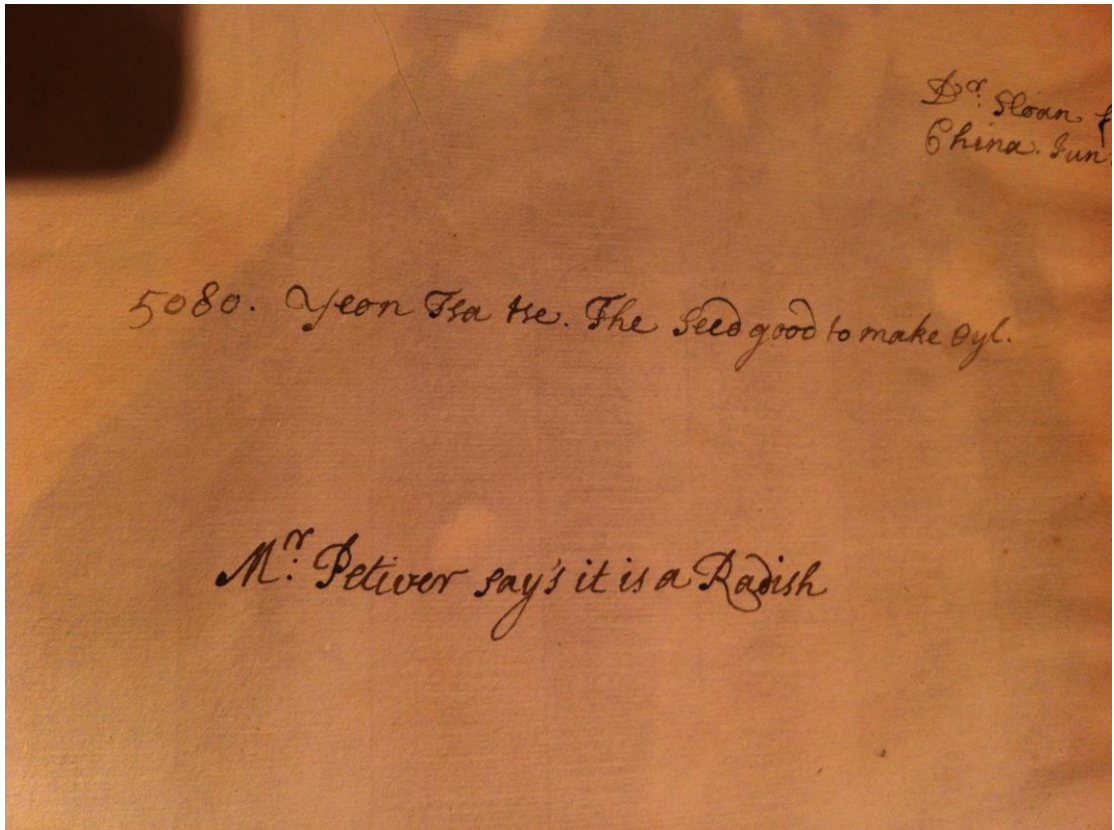 Dr. Sloan
China. Jun
5080. Yeon Tsa tse. The Seed good to make Oyl.
Mr. Petiver say's it is a Radish